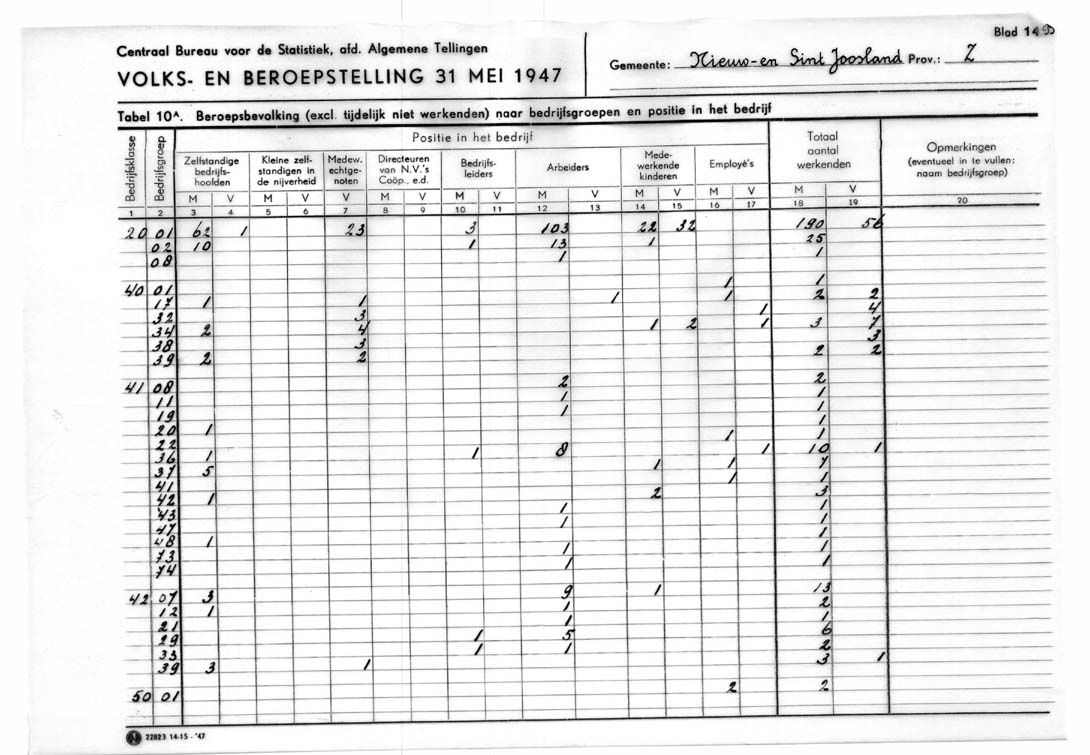 Blad 14 b
Centraal Bureau voor de Statistiek, afd. Algemene Tellingen
VOLKS- EN BEROEPSTELLING 31 MEI 1947
Gemeente: Nieuw- en Sint Joosland Prov.: Z
Tabel 10A. Beroepsbevolking (excl. tijdelijk niet werkenden) naar bedrijfsgroepen en positie in het bedrijf
Bedrijfsklasse
Bedrijfsgroep
Positie in het bedrijf
Zelfstandige bedrijfs-hoofden
Kleine zelf-standigen in de nijverheid
Medew. echtge-noten
Directeuren van N.V.'s Coöp., e.d.
Bedrijfs-leiders
Arbeiders
Mede-werkende kinderen
Employé's
Totaal aantal werkenden
Opmerkingen (eventueel in te vullen: naam bedrijfsgroep)
M V M V V M V M V M V M V M V M V
1 2 3 4 5 6 7 8 9 10 11 12 13 14 15 16 17 18 19 20
20 01 62 1 23 3 103 22 32 190 56
02 10 1 13 1 25
08 1 1
40 01 1 1
17 1 1 1 1 2 2
32 3 1 4
34 2 4 1 2 1 3 7
38 3 3
39 2 2 2 2
41 08 2 2
11 1 1
19 1 1
20 1 1
22 1 1
36 1 1 8 1 10 1
37 5 1 1 7
41 1 1
42 1 2 3
43 1 1
47 1 1
48 1 1
73 1 1
74 1 1
42 07 3 9 1 13
12 1 1 2
21 1 1
29 1 5 6
33 1 1 2
39 3 1 3 1
50 01 2 2
22823 14-15 - '47